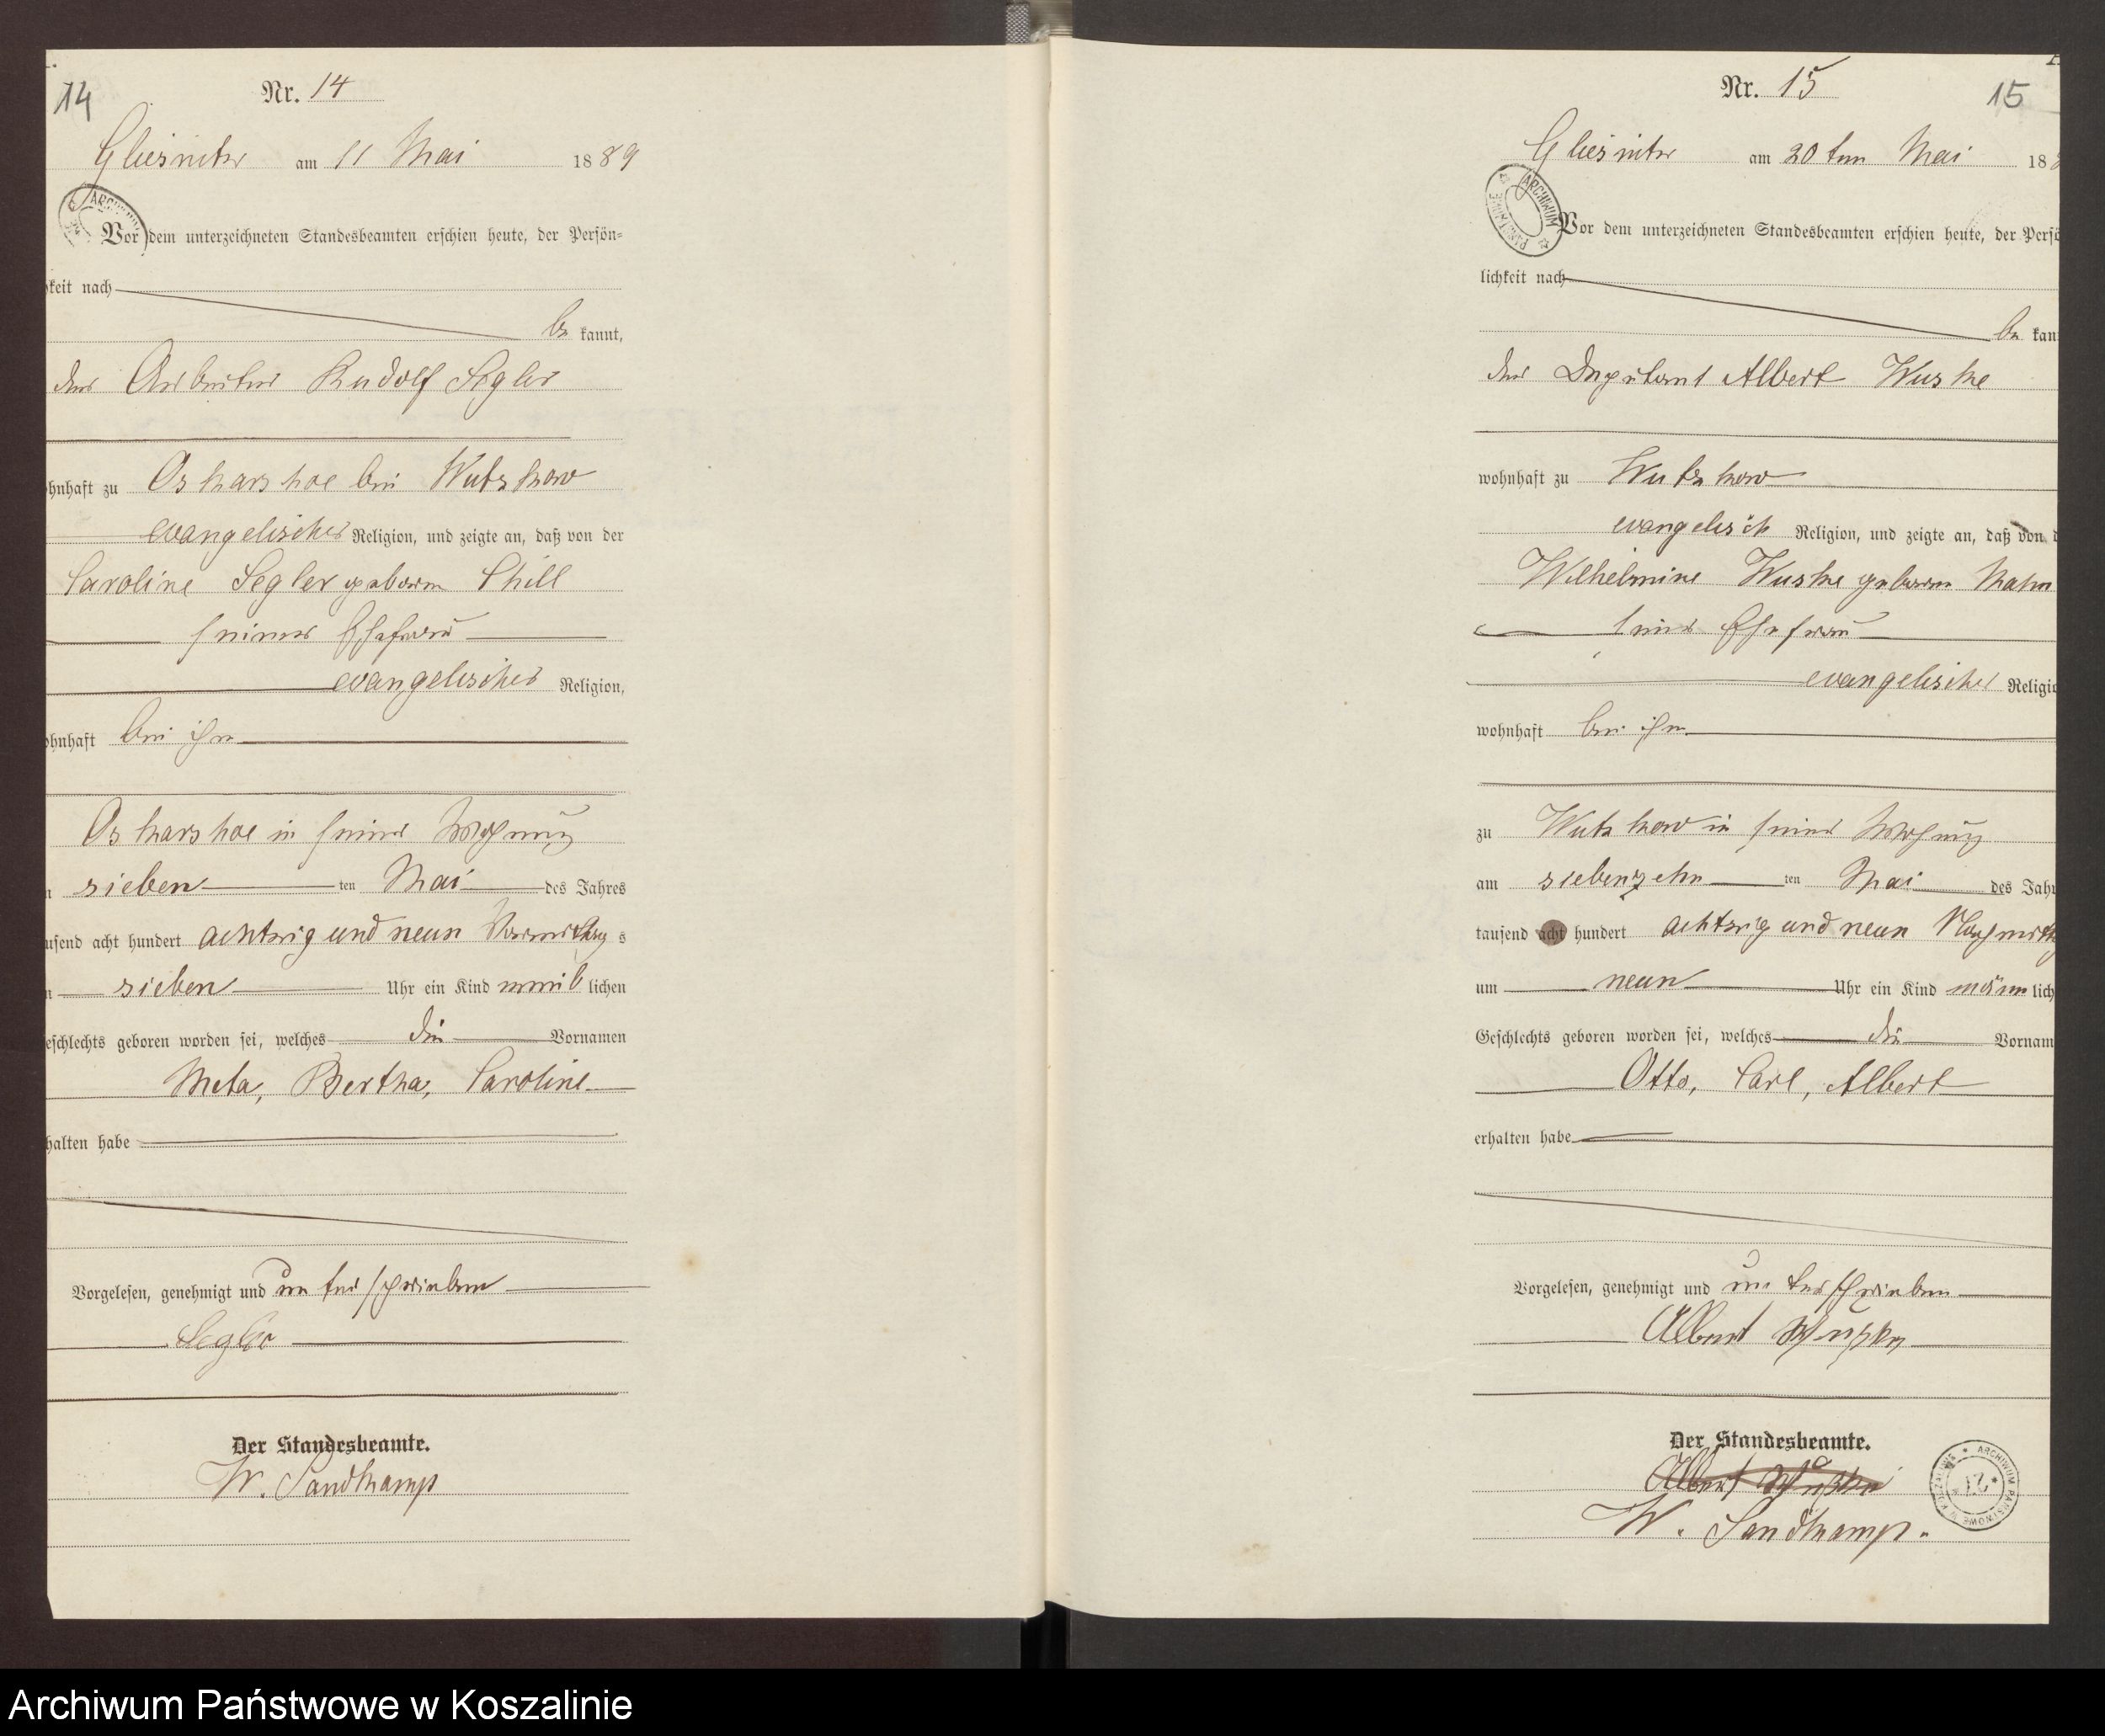 14
Nr. 14
Gliesnitz am 11 Mai 1889
ARCHIWUM
Vor dem unterzeichneten Standesbeamten erschien heute, der Persön=
keit nach
be kannt,
der Arbeiter Rudolf Segler
hnhaft zu Oskarshoe bei Wutzkow
evangelischer Religion, und zeigte an, daß von der
Caroline Segler geboren Schill
seiner Ehefrau
evangelischer Religion,
ohnhaft bei ihm
Oskarshoe in seiner Wohnung
sieben ten Mai des Jahres
usend acht hundert achtzig und neun Vormittag s
sieben Uhr ein Kind weib lichen
eschlechts geboren worden sei, welches die Vornamen
Meta, Bertha, Caroline
halten habe
Vorgelesen, genehmigt und unterschrieben
Segler
Der Standesbeamte.
W. Sandkamp
Nr. 15
15
Gliesnitz am 20ten Mai 188
ARCHIWUM PAŃSTWOWE
Vor dem unterzeichneten Standesbeamten erschien heute, der Persö
lichkeit nach
be kan
der Deputant Albert Wuske
wohnhaft zu Wutzkow
evangelisch Religion, und zeigte an, daß von d
Wilhelmine Wuske geboren Hahn
seiner Ehefrau
evangelischer Religio
wohnhaft bei ihm
zu Wutzkow in seiner Wohnung
am siebenzehn ten Mai des Jahr
tausend acht hundert achtzig und neun Nachmittag
um neun Uhr ein Kind männ lich
Geschlechts geboren worden sei, welches die Vornam
Otto, Carl, Albert
erhalten habe
Vorgelesen, genehmigt und unterschrieben
Albert Wuske
Der Standesbeamte.
Albert Wuske
W. Sandkamp.
ARCHIWUM PAŃSTWOWE W KOSZALINIE
Archiwum Państwowe w Koszalinie